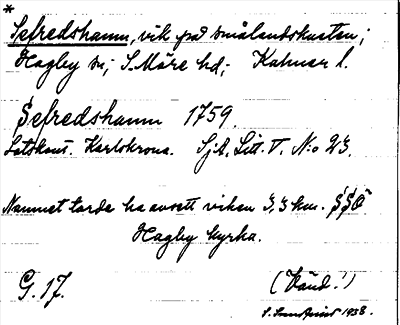 *
Sefredshamn, vik på smålandskusten;
Hagby sn; S. Möre hd; Kalmar l.
Sefredshamn 1759.
Lotskont. Karlskrona. Sj.A. Litt. V. N:o 23.
Namnet torde ha avsett viken 3,3 km. SSÖ
Hagby kyrka.
G. 17.
(Vänd!)
1938.